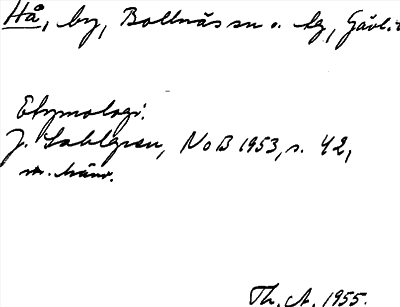 Hå, by, Bollnäs sn o. kg, Gävl.
Etymologi:
J. Sahlgren, NoB 1953, s. 42,
m. hänv.
Th. A. 1955.